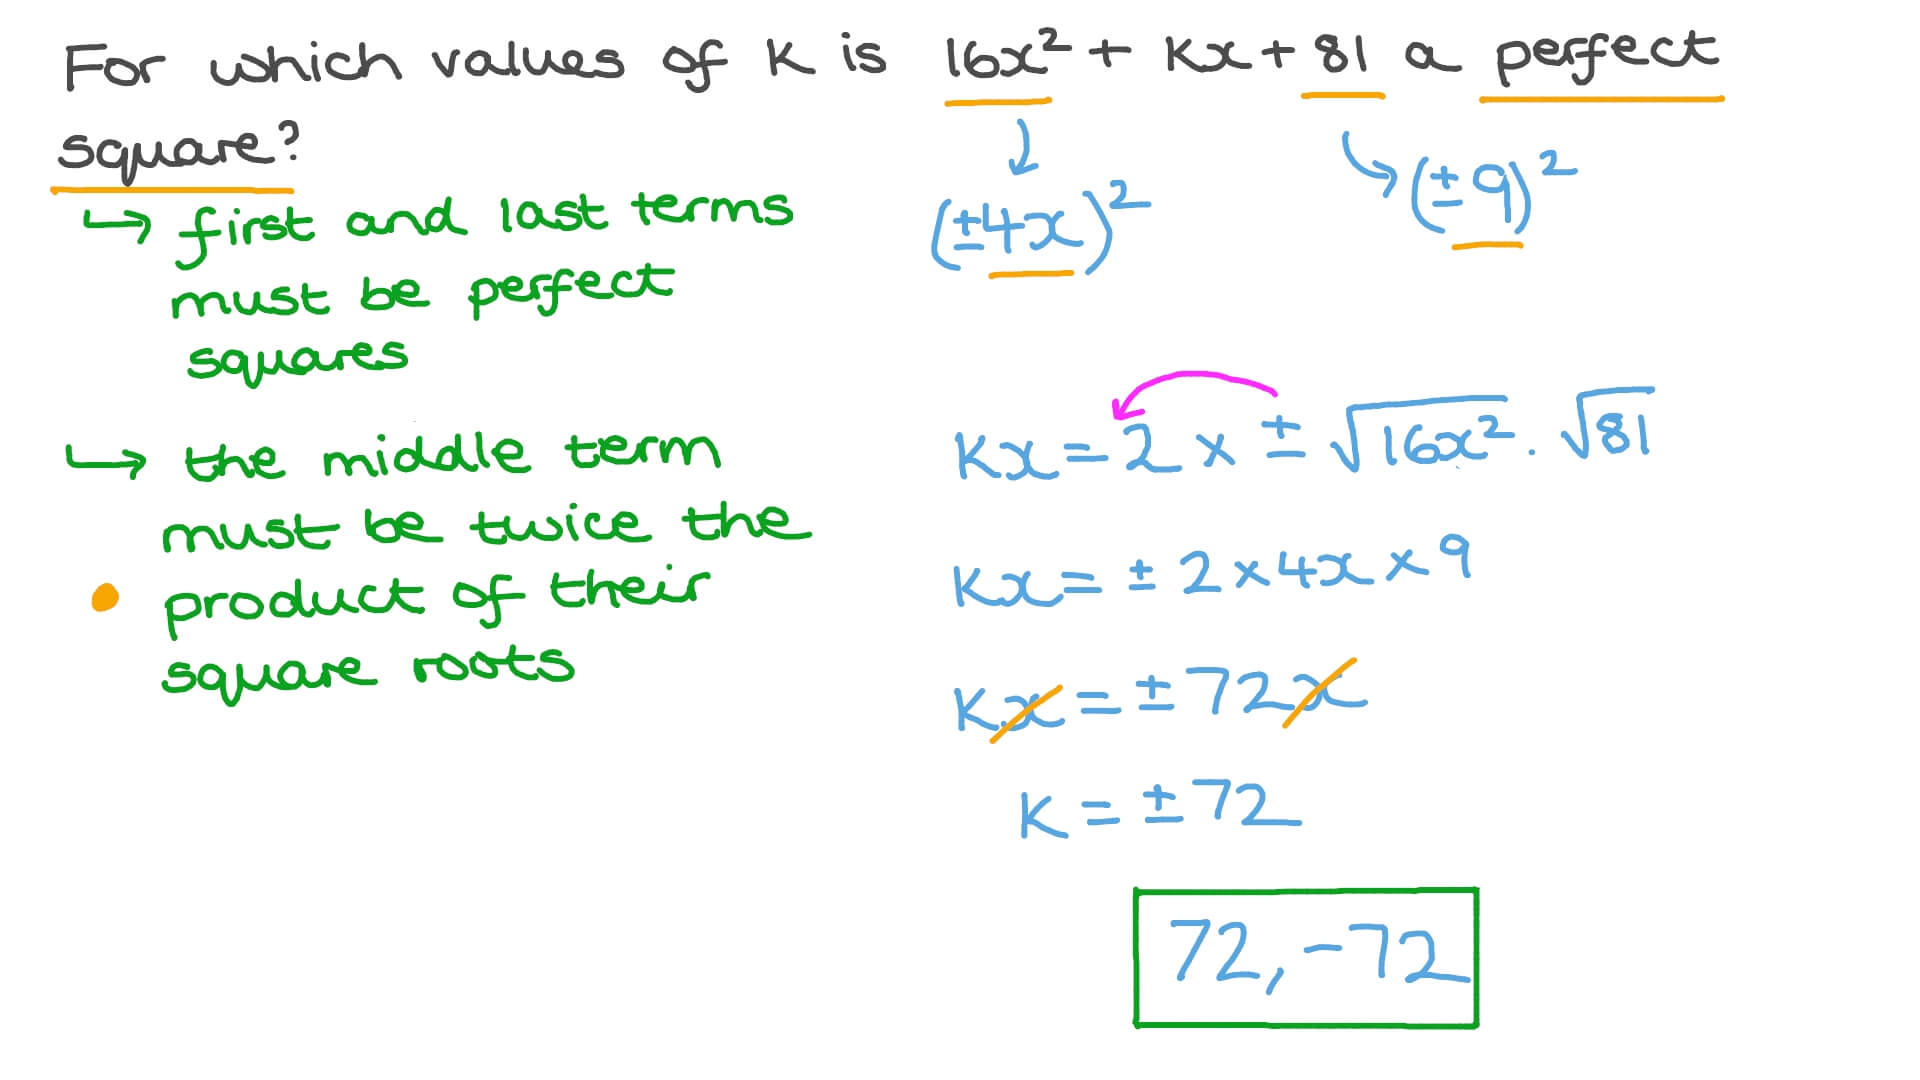 For which values of K is 16x² + Kx + 81 a perfect
square?
↳ first and last terms
must be perfect
squares
↳ the middle term
must be twice the
product of their
square roots
(±4x)²
(±9)²
Kx = 2 × ± √16x² . √81
Kx = ± 2 × 4x × 9
Kx = ± 72x
K = ± 72
72, -72